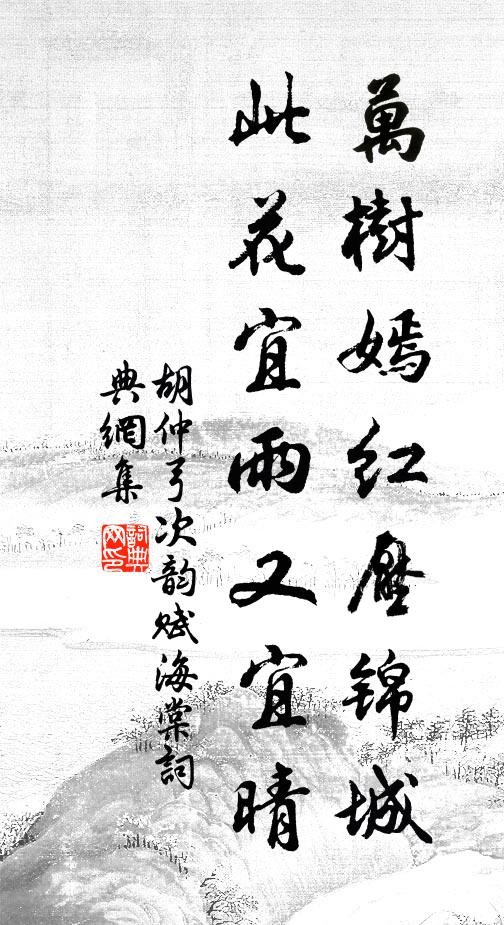 萬樹嫣紅壓錦城
此花宜雨又宜晴
胡仲弓次韵赋海棠詞
典網集
詞典
网印